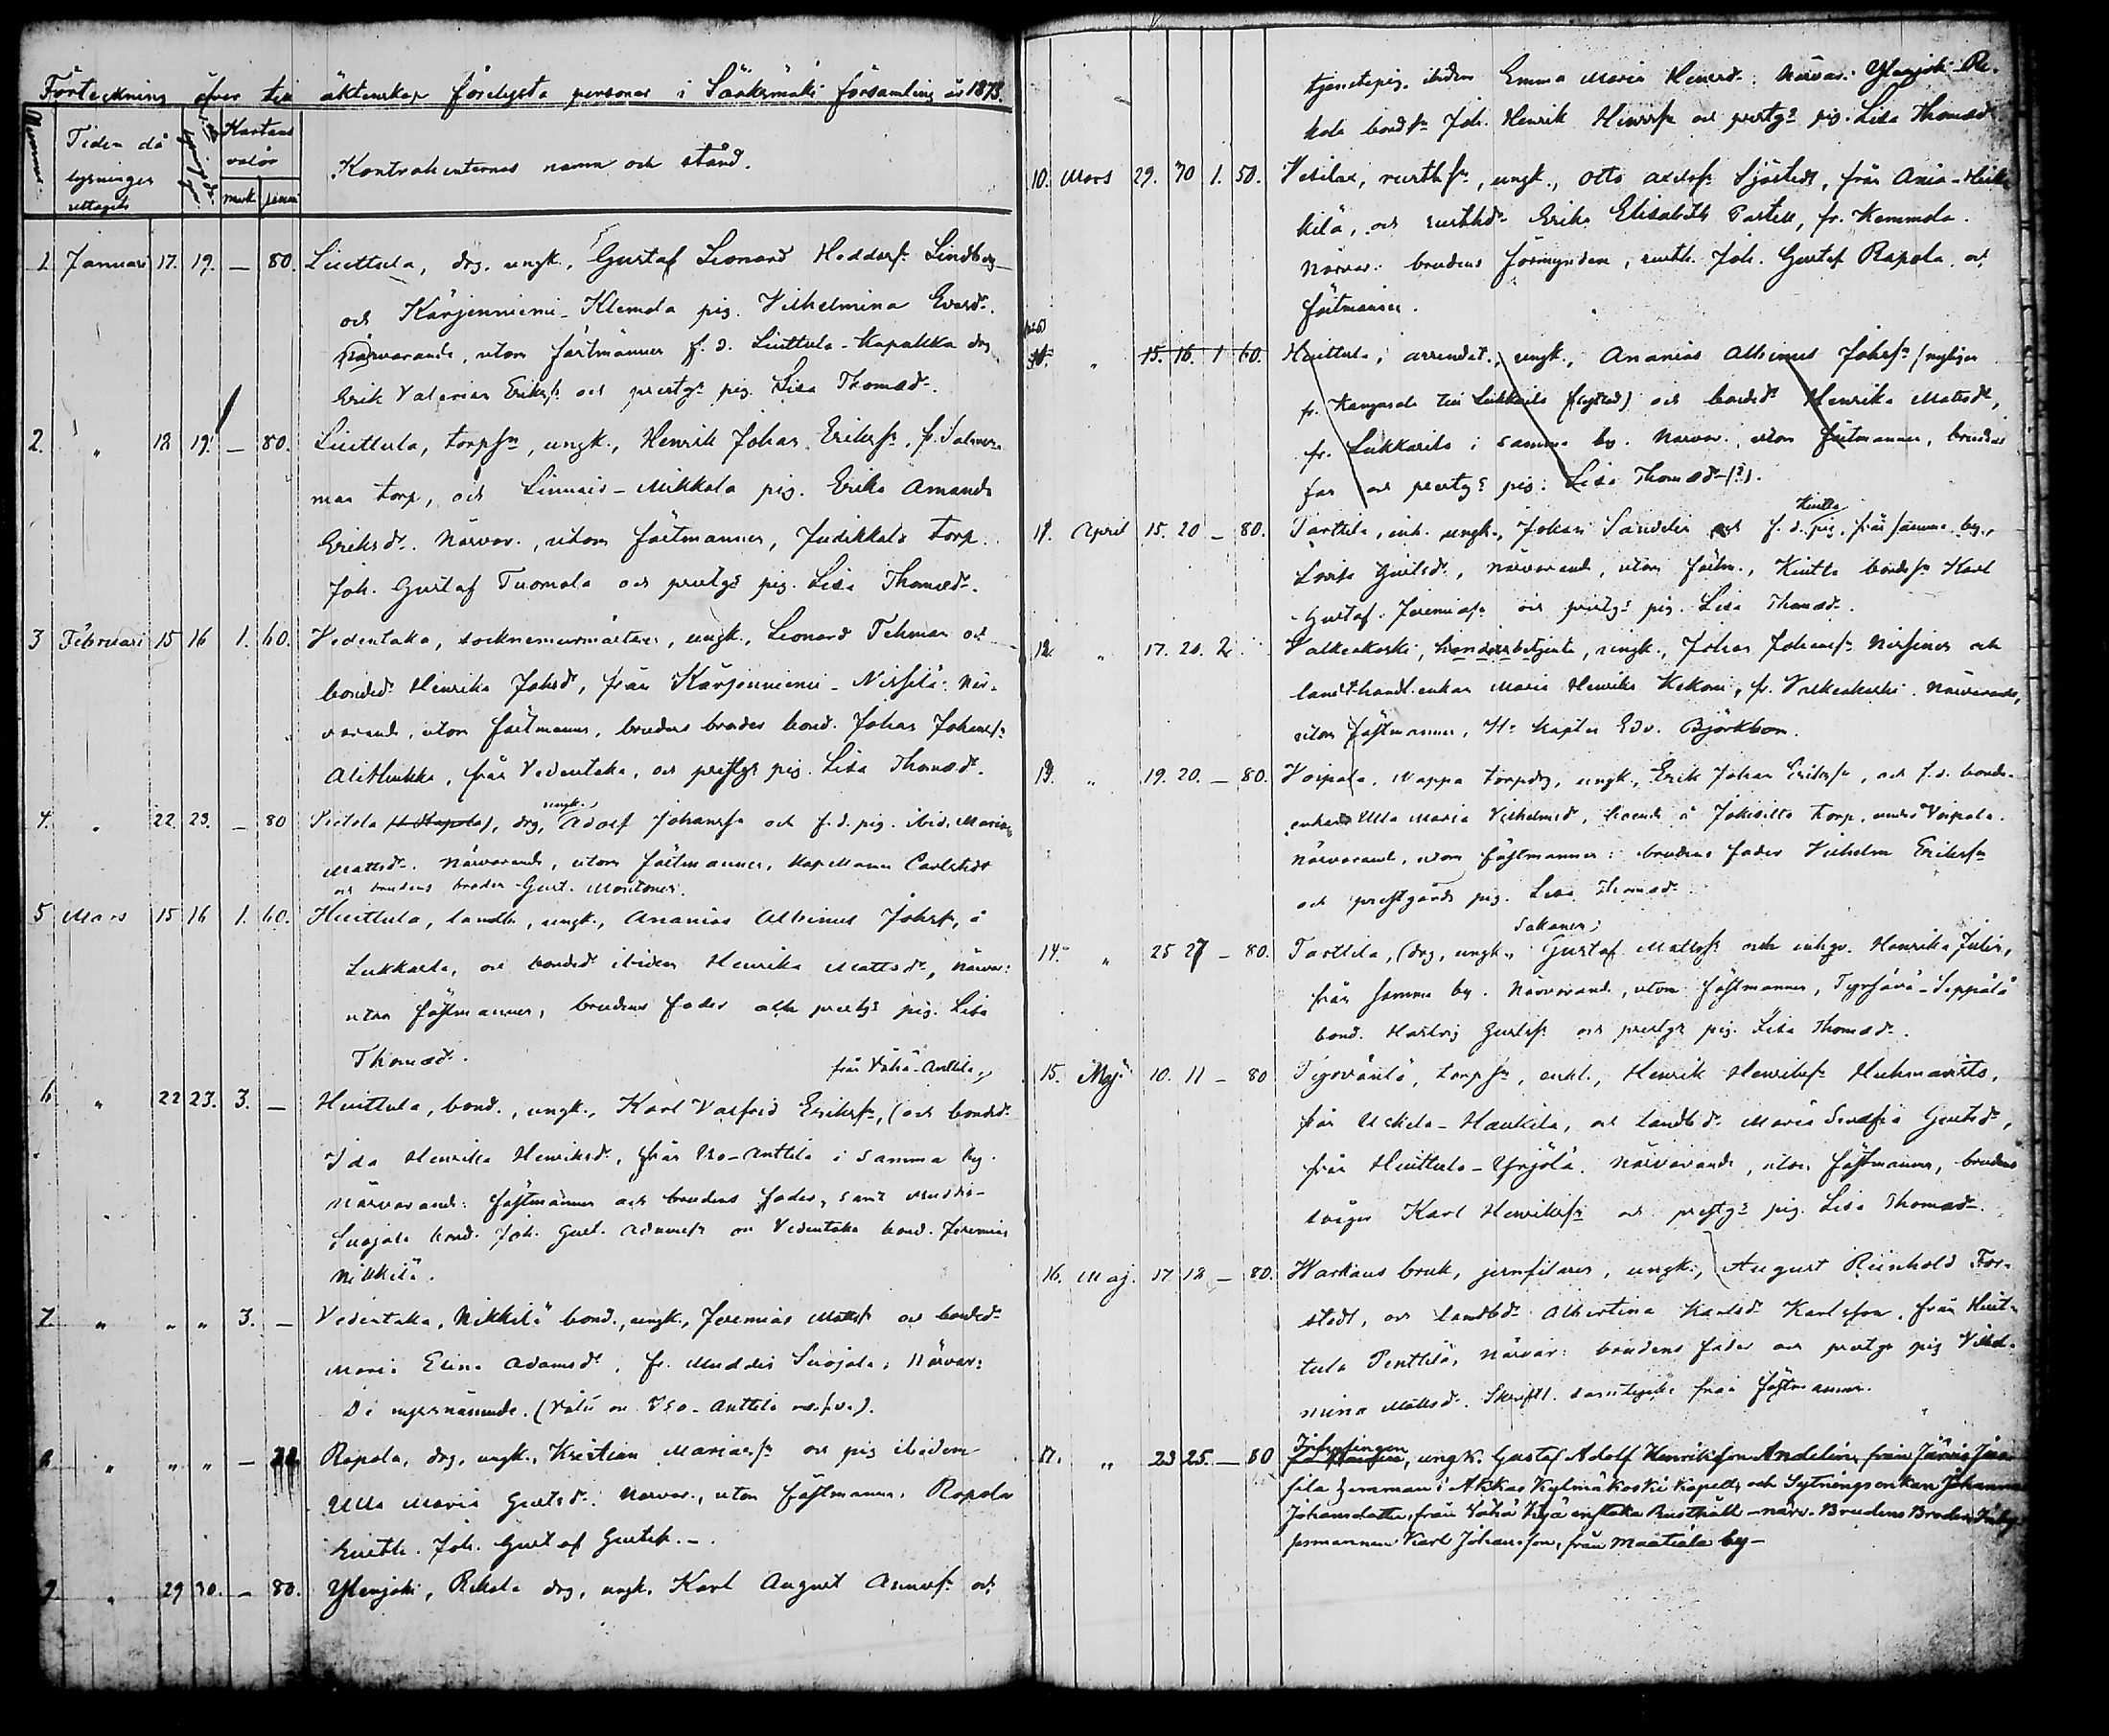 Förteckning öfver till äktenskap förelysta personer i Sääksmäki församling år 1873.
Nummer. Tiden då lysningen uttagits Kartans valör mark penni Kontrahenternas namn och stånd.
1. Januari 17. 19. — 80. Liuttula, drg. ungk., Gustaf Leonard Lindberg
och Kärjenniemi-Klemola pig. Vilhelmina Evasd.
Närvarande, utom fästmannen f. d. Liuttula-Kapakka drg
Erik Valerian Eriksfn och prestgs pig. Lisa Thomasd.
2. " 18 19. — 80. Liuttula, torpsn, ungk., Henrik Johan Eriksfn, fr.
maa torp, och Linnais-Mikkola pig. Erika Amanda
Eriksd. Närvar., utom fästmannen, Judikkala torp.
Joh. Gustaf Tuomola och prestgs pig. Lisa Thomasd.
3 Februari 15 16 1. 60. Vedentaka, socknemurmästaren, ungk., Leonard Tehman och
bonded. Henrika Johsd, från Kärjenniemi-Nissilä. När-
varande, utom fästmannen, brudens broder bond. Johan Johansfn
Alithukka, från Vedentaka, och prestgs pig. Lisa Thomasd.
4. " 22. 23. — 80 drg, ungk., Adolf Johansfn och f. d. pig. ibid. Maria
Mattsd. Närvarande, utom fästmannen, Carlstedt
och brudens broder Gust.
5 Mars 15 16 1. 60. Huittula, landb., ungk., Ananias Albinus Johsfn, å
Lukkarla, och bonded. ibidem Henrika Mattsd., närvar:
utom fästmannen, brudens fader och prestgs pig. Lisa
Thomasd.
6. " 22 23. 3. — Huittula, bond., ungk., Karl Valfrid Eriksfn, från Vähä-Anttila, och bonded.
Ida Henrika Henriksd., från Iso-Anttila i samma by.
Närvarande: fästmannen och brudens fader, samt
Suojala bond. Joh. Gust. Adamsfn och Vedentaka bond. Jeremias
Nikkilä.
7. " " " 3. — Vedentaka, Nikkilä bond., ungk., Jeremias Mattsfn och bonded.
Maria Elina Adamsd., fr. Suojala; Närvar:
De nyssnämnde. (Vähä och Iso-Anttila
8. " " " — Rapola, drg, ungk., Kristian Mariasfn och pig ibidem
Ulla Maria Gustsd. Närvar., utom fästmannen, Rapola
rusth. Joh. Gustaf Gustsfn.—.
9. " 29 30. — 80. Ylenjoki, Rekola drg, ungk. Karl August Annasfn och
tjenstepig. ibidem Emma Maria Henrd. Närvar. Ylenjoki-Re-
kola bondsn Joh. Henrik Henrsfn och prestgs pig. Lisa Thomasd.
10. Mars 29. 30 1. 50. Vesilax, rusthsn, ungk., Otto Axelsfn Sjöstedt, från
kilä, och rusthd. Erika Elisabeth Partell, fr. Kemmola.
Närvar: brudens förmyndare, rusth. Joh. Gustaf Rapola och
fästmannen.
" 15. 16. 1 60. Huittula, arrendat., ungk., Ananias Albinus Johsfn (nyligen
fr. Kangasala till Lukkarila flyttad) och bonded. Henrika Mattsdr,
fr. Lukkarila i samma by. Närvar., utom fästmannen, brudens
far och prestgs pig. Lisa Thomasd (?).
11. April 15. 20 — 80. Tarttila, inh. ungk., Johan Sandelin och f. d. Kuitla pig. från samma by,
Lovisa Gustsd., närvarande, utom fästm., Kuitla bondsn Karl
Gustaf Jeremiasfn och prestgs pig. Lisa Thomasd.
12. " 17. 20. 2. Valkeakoski, handelsbetjente, ungk., Johan Johansfn Nissinen och
landthandl.enkan Maria Henrika Kekoni, fr. Valkeakoski. Närvarande,
utom fästmannen, Hr Kapten Edv. Björkbom.
13. " 19. 20. — 80. Voipala, Nappa torpdrg, ungk., Erik Johan Eriksfn, och f. d. bonde-
enkan Ulla Maria Vilhelmsd, boende å Jokisilta torp, under Voipala.
Närvarande, utom fästmannen: brudens fader Vilhelm Eriksfn
och prestgårds pig. Lisa Thomasd.
14. " 25 27 — 80. Tarttila, drg, ungk., Gustaf Mattsfn Sakanen, och inhpig. Henrika Julin,
från samma by. Närvarande, utom fästmannen, Seppälä
bond. Hartvig Gustsfn och prestgs pig. Lisa Thomasd.
15. Maj 10. 11 — 80 torpsn, enkl., Henrik Henriksfn
från Uckila-Haukila, och landbd. Maria Serafia Gustsd,
från Huittula-Yrjölä. Närvarande, utom fästmannen, brudens
svåger Karl Henriksfn och prestgs pig. Lisa Thomasd.
16. Maj. 17 18 — 80. Warkaus bruk, jernfilaren, ungk., August Reinhold For-
stedt, och landbd. Albertina Karlsd. Karlsson, från Huit-
tula Penttilä, närvar: brudens fader och prestgs pig Vilhel-
mina Mattsd. Skriftl. samtycke från fästmannen.
17. " 23 25. — 80 Inhysingen, ungk. Gustaf Adolf Henriksson Andelin, från Järvis
fila hemman i Akkas Kylmäkoski Kapell, och Sytningsenkan Johanna
Johansdotter, från Vähä Rusthåll — närv. Brudens Broder
Karl Johansson, från Maatiala by —